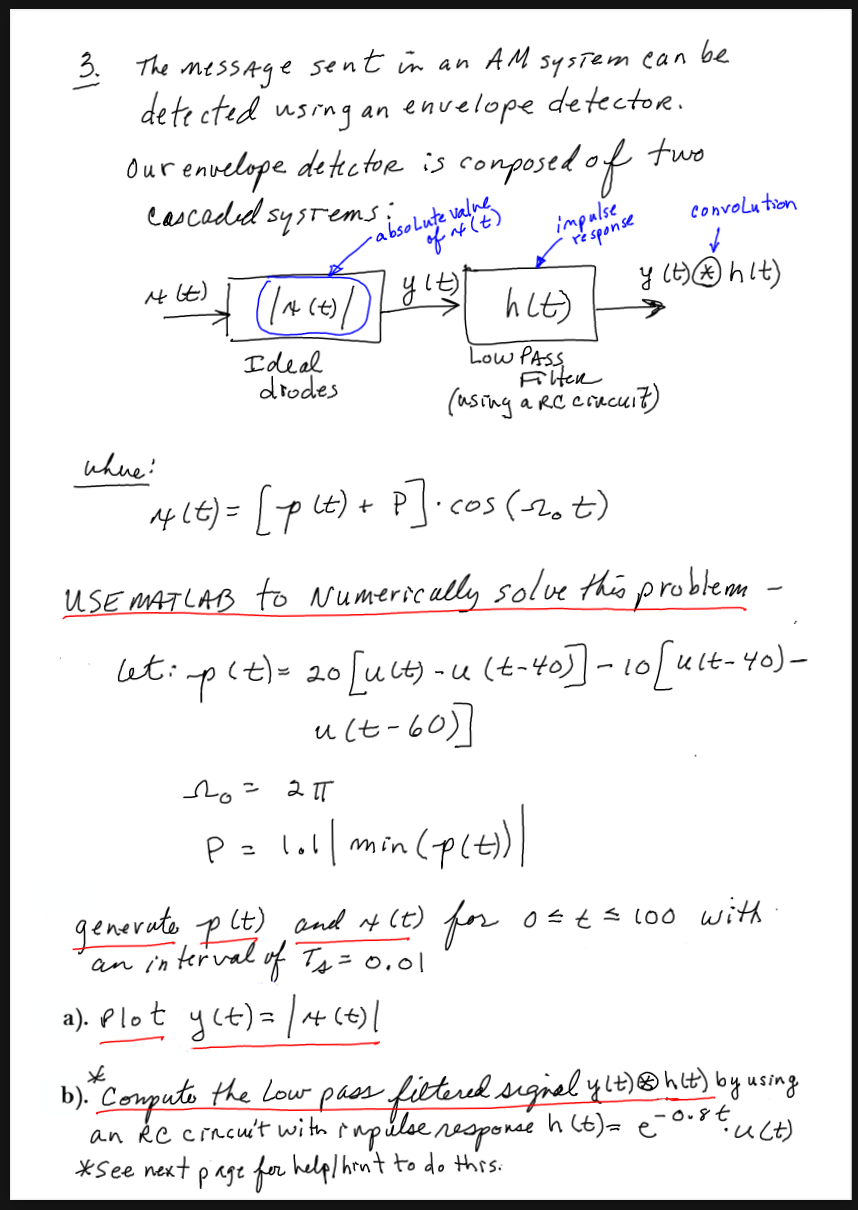 3. The message sent in an AM system can be
detected using an envelope detector.
Our envelope detector is composed of two
cascaded systems:
absolute value
of x(t)
impulse
response
convolution
x(t)
|x(t)|
y(t)
h(t)
y(t)⊛h(t)
Ideal
diodes
Low Pass
Filter
(using a RC circuit)
where:
x(t) = [p(t) + P]·cos(Ω₀t)
USE MATLAB to Numerically solve this problem -
let: p(t) = 20[u(t) - u(t-40)] - 10[u(t-40) -
u(t-60)]
Ω₀ = 2π
P = 1.1|min(p(t))|
generate p(t) and x(t) for 0 ≤ t ≤ 100 with
an interval of Tₛ = 0.01
a). Plot y(t) = |x(t)|
b).* Compute the low pass filtered signal y(t)⊛h(t) by using
an RC circuit with impulse response h(t) = e^{-0.8t}·u(t)
*See next page for help/hint to do this.